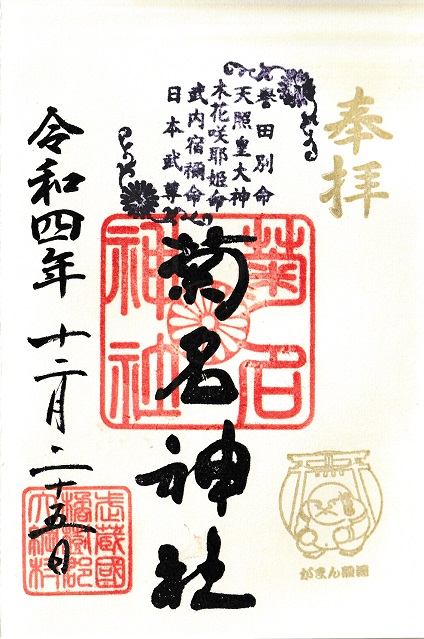 奉拝
誉田別命
天照皇大神
木花咲耶姫命
武内宿禰命
日本武尊
菊名神社
菊名
神社
令和四年 十二月二十五日
武蔵國
橘樹郡
大綱村
がまん鬼面